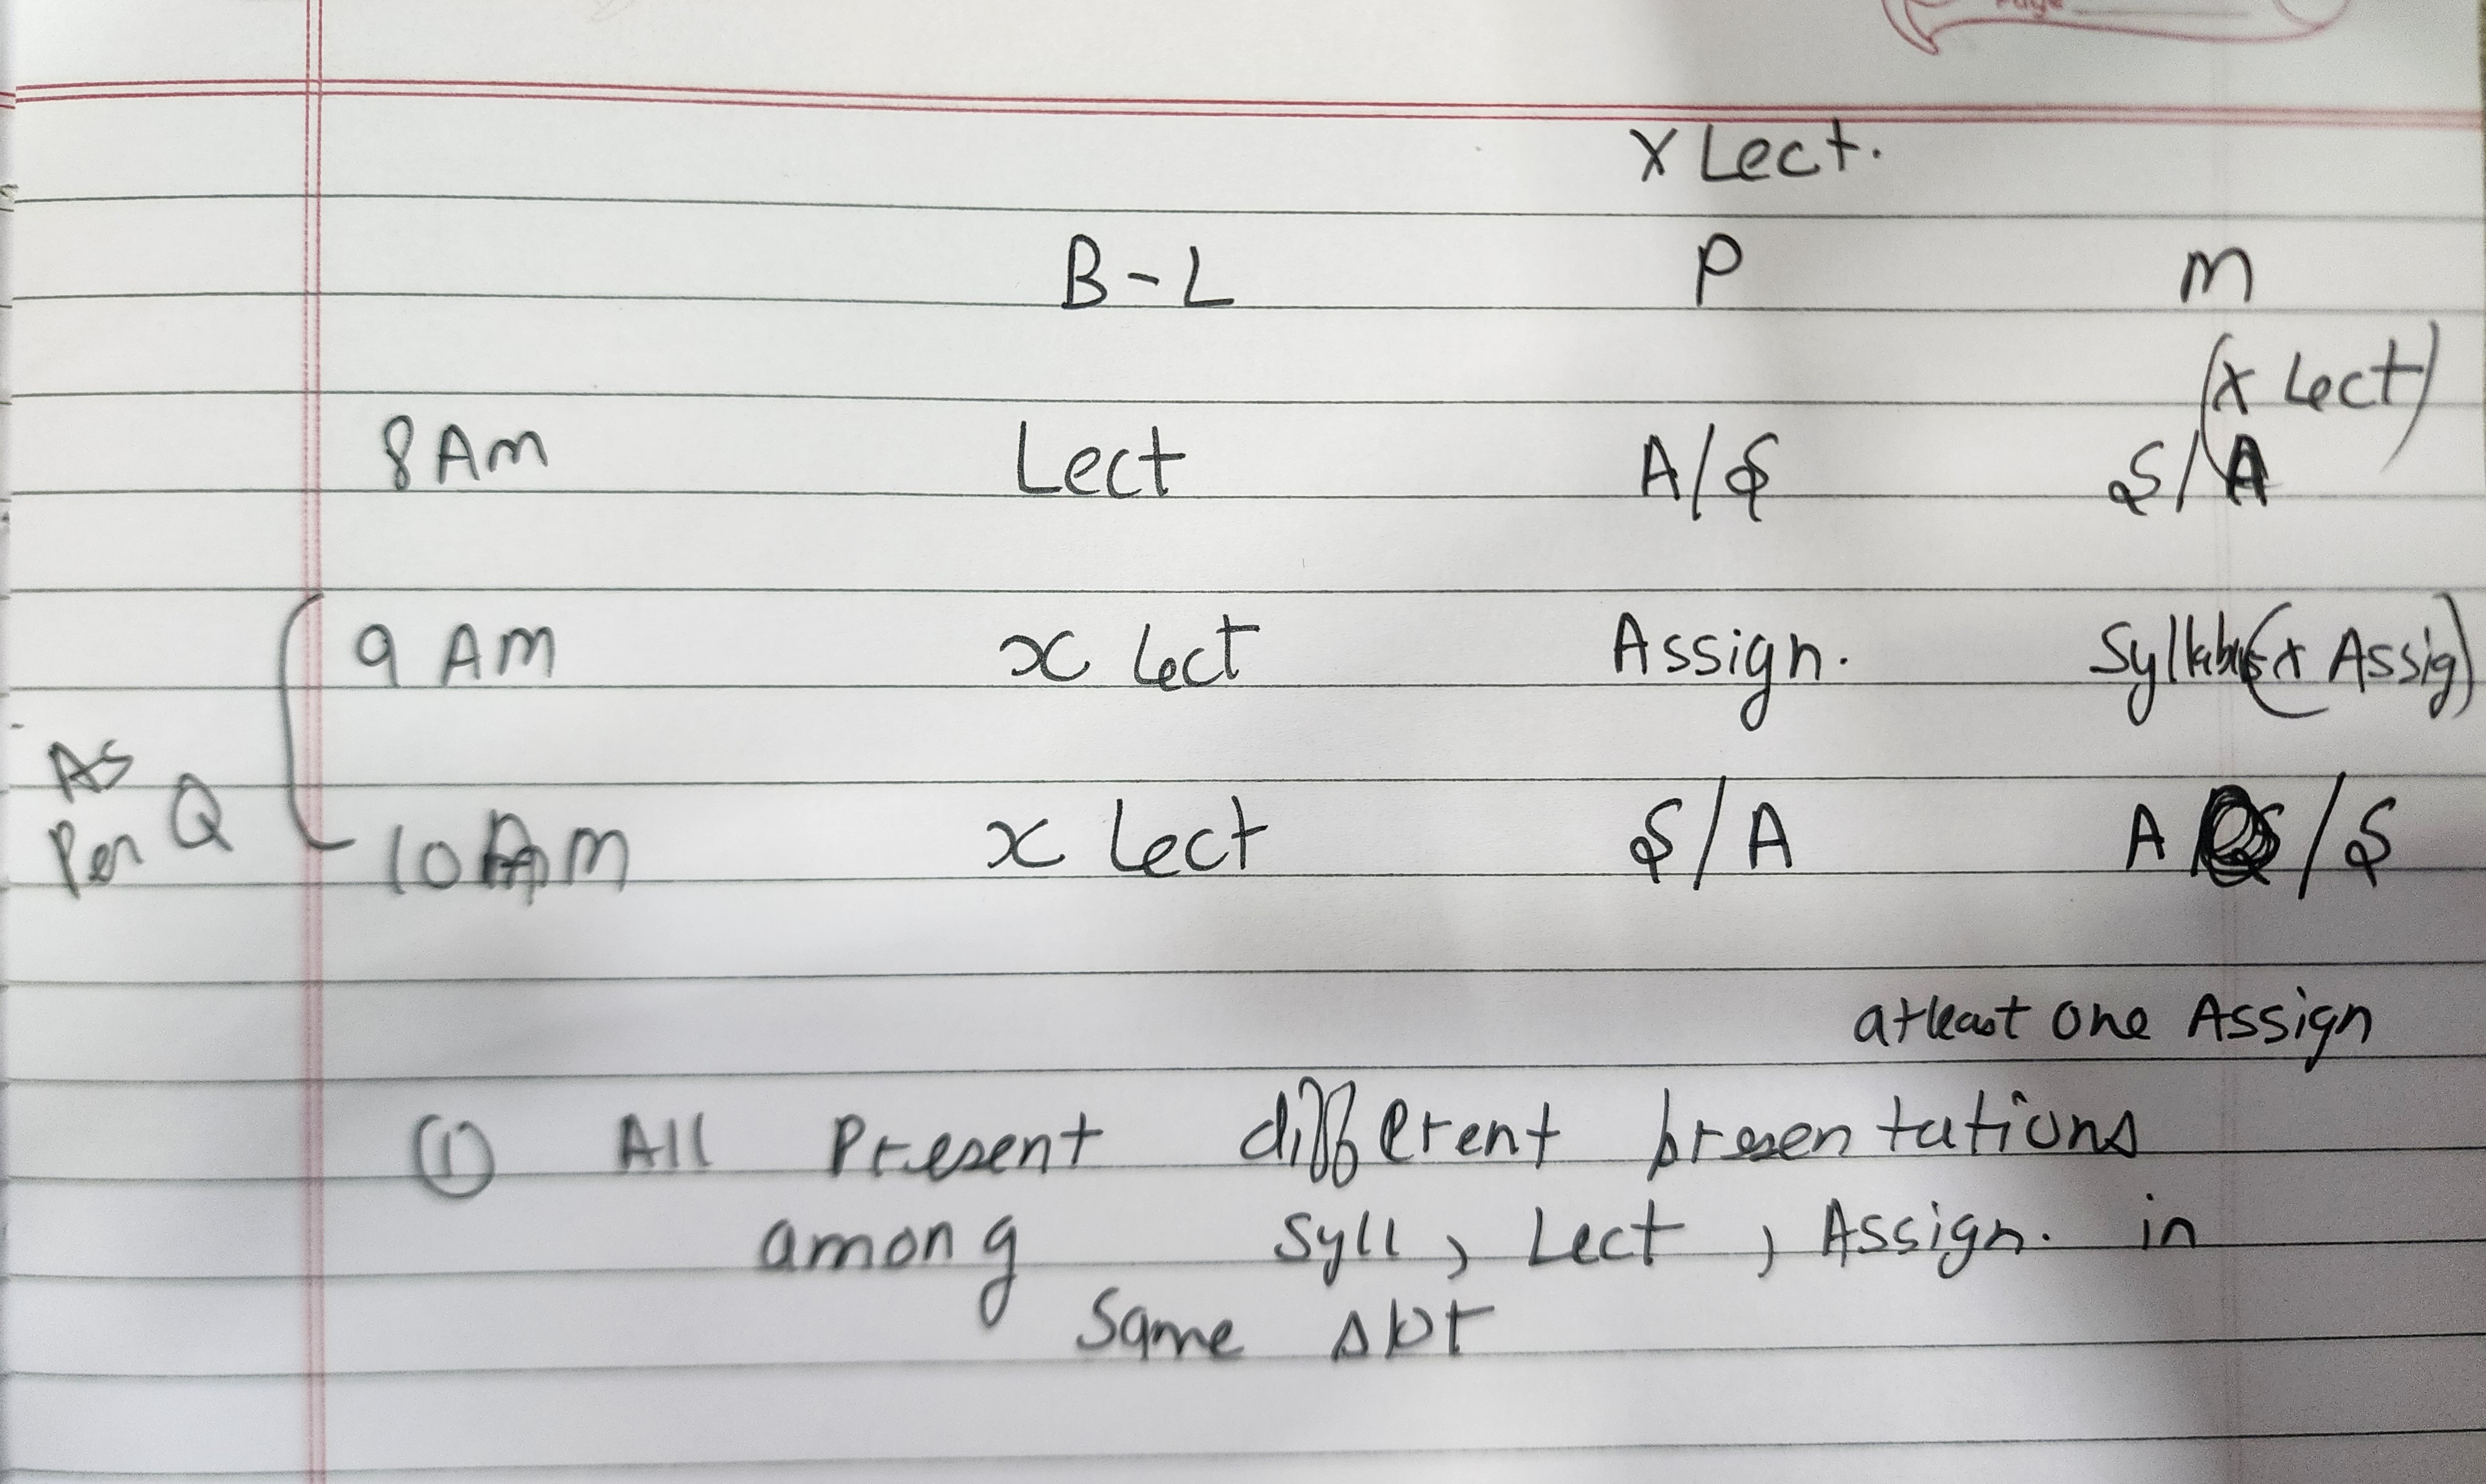 x Lect.
B - L P m
(x Lect)
8 Am Lect A/S S/A
9 AM x Lect Assign. Syllabus (x Assig)
As
Per Q
10 AM x Lect S/A A /S
atleast one Assign
① All Present different presentations
among Syll, Lect, Assign. in
Same slot